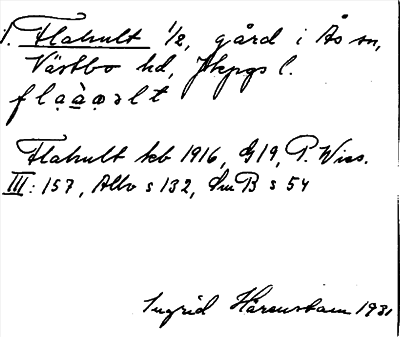 1. Flahult 1/2, gård i Ås sn,
Västbo hd, Jkpgs l.
Flahult kb 1916, G19, P. Wiss.
III: 157, Allv s 132, Sm B s 54
Ingrid Härenstam 1931